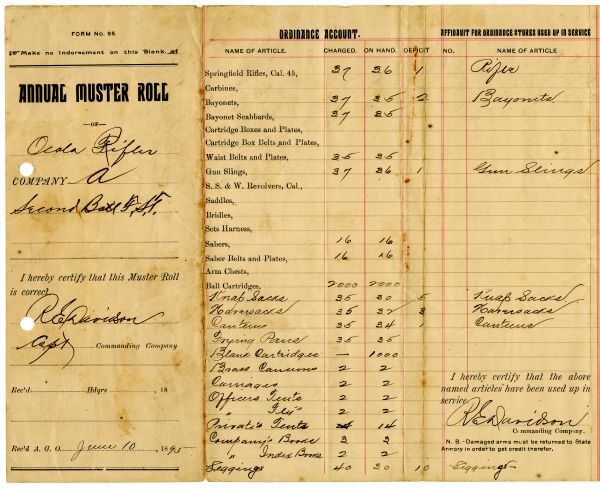 FORM No. 95.
Make no Indorsement on this Blank.
ANNUAL MUSTER ROLL
—OF—
Ocala Rifles
COMPANY A
Second Batt F.S.T.
I hereby certify that this Muster Roll
is correct.
R E Davidson
Capt Commanding Company
Rec'd Hdqrs , 18
Rec'd A. G. O. June 10 , 1895
ORDINANCE ACCOUNT.
NAME OF ARTICLE. CHARGED. ON HAND. DEFICIT
Springfield Rifles, Cal. 45, 37 36 1
Carbines,
Bayonets, 37 35 2
Bayonet Scabbards, 37 35
Cartridge Boxes and Plates,
Cartridge Box Belts and Plates,
Waist Belts and Plates, 35 35
Gun Slings, 37 36 1
S. S. & W. Revolvers, Cal.,
Saddles,
Bridles,
Sets Harness,
Sabers, 16 16
Saber Belts and Plates, 16 16
Arm Chests,
Ball Cartridges, 2000 2000
Knap Sacks 35 30 5
Haversacks 35 32 3
Canteens 35 34 1
Frying Pans 35 35
Blank Cartridges — 1000
Brass Cannons 2 2
Carriages 2 2
Officers Tents 2 2
" Fly" 2 2
Private's Tents 14
Company's Books 3 3
" Index Books 2 2
Leggings 40 30 10
AFFIDAVIT FOR ORDINANCE STORES USED UP IN SERVICE
NO. NAME OF ARTICLE
Rifle
Bayonets
Gun Slings
Knap Sacks
Haversacks
Canteens
I hereby certify that the above
named articles have been used up in
service
R E Davidson
Commanding Company.
N. B.-Damaged arms must be returned to State
Armory in order to get credit therefor.
Leggings